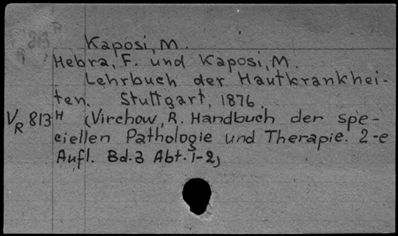 Kaposi, M.
Hebra, F. und Kaposi, M.
Lehrbuch der Hautkrankhei-
ten. Stuttgart, 1876.
VR 813H (Virchow, R. Handbuch der spe-
ciellen Pathologie und Therapie. 2-e
Aufl. Bd. 3 Abt. 1-2)